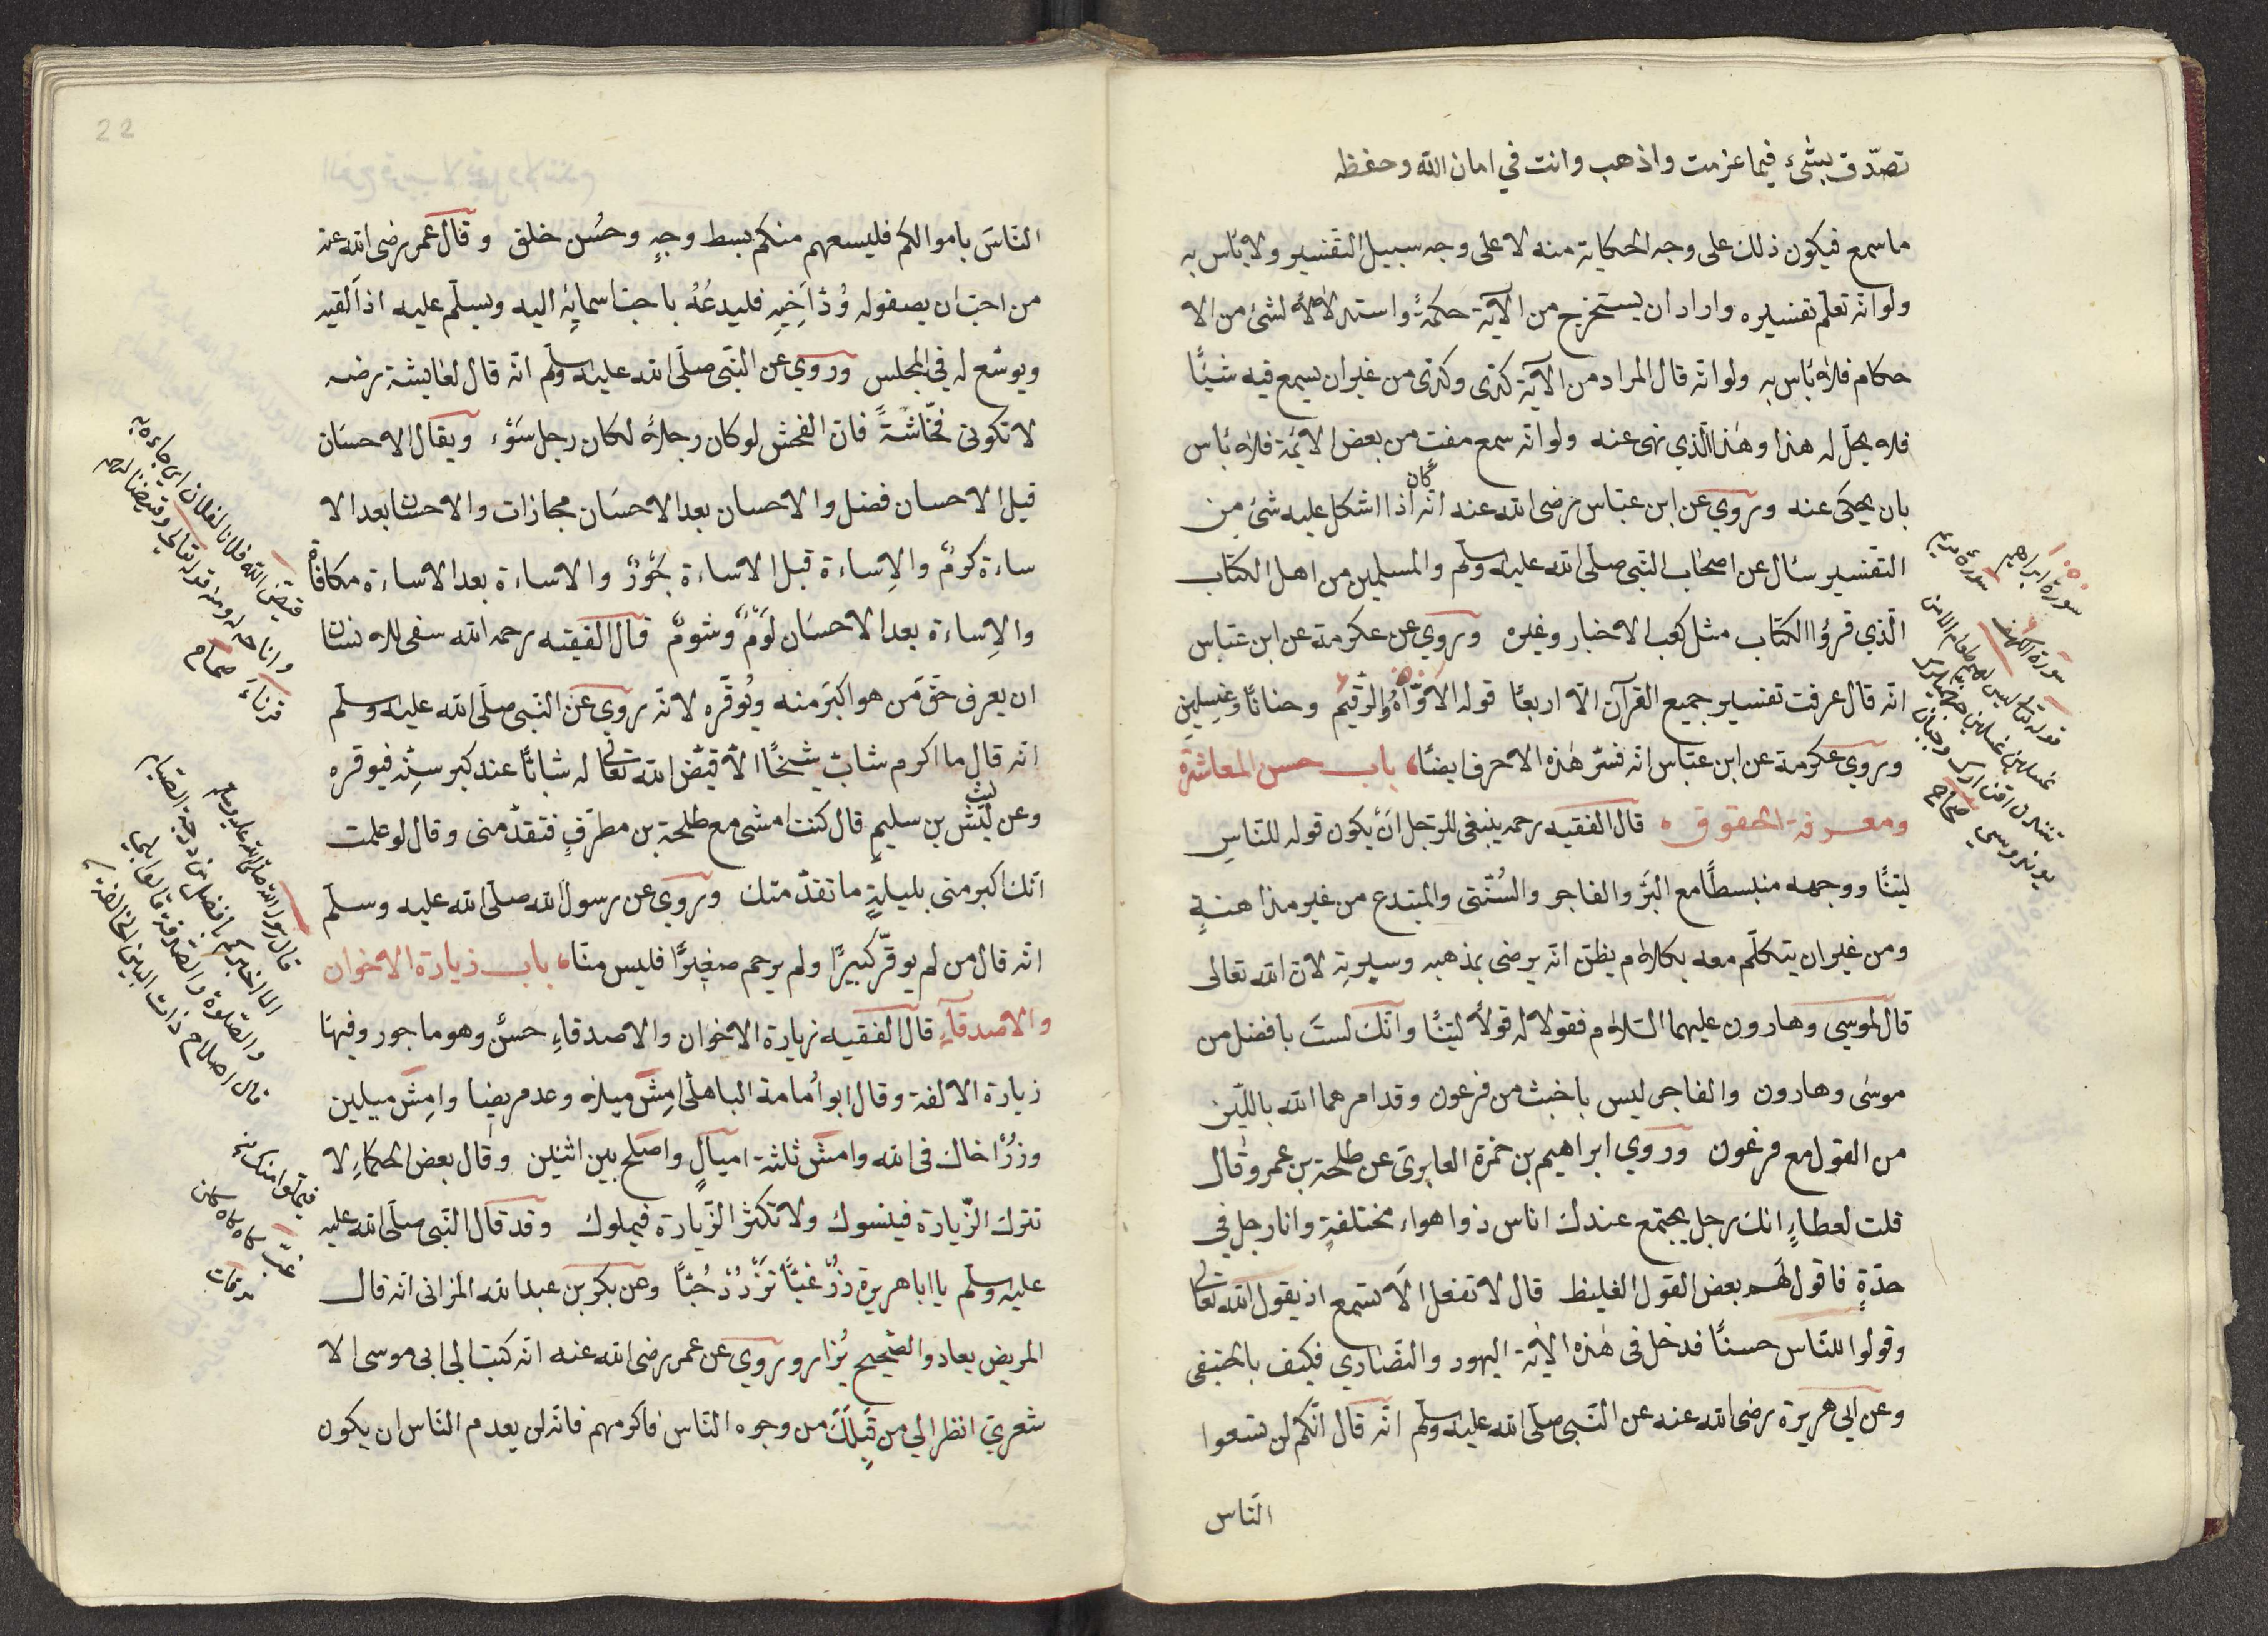 تصدّق بشئ فيما عزمت واذهب وانت في امان الله وحفظه
ما سمع فيكون ذلك على وجه الحكاية منه لا على وجه سبيل التفسير ولا بأس به
ولو انه تعلّم تفسيره واراد ان يستخرج من الآية حكمةً واستدلالاً لشئ من الا
حكام فلا بأس به ولو انه قال المراد من الآية كذى وكذى من غير ان يسمع فيه شيئًا
فلا يحلّ له هذا وهذا الّذي نهى عنه ولو انه سمع مفت من بعض الائمة فلا بأس
بان يحكى عنه وروي عن ابن عبّاس رضى الله عنه انه كان اذا اشكل عليه شئ من
التفسير سأل عن اصحاب النبى صلّى الله عليه وسلّم والمسلمين من اهل الكتاب
الّذي قرؤا الكتاب مثل كعب الاخبار وغيره وروي عن عكرمة عن ابن عبّاس
انّه قال عرفت تفسير جميع القرآن الّا اربعًا قوله الاوّاهُ والرّقيم وحنانًا وغسلين
وروي عكرمة عن ابن عبّاس انه فسّر هذه الاحرف ايضًا باب حسن المعاشرة
ومعرفة الحقوق قال الفقيه رحمه ينبغى للرّجل انْ يكون قوله للنّاسِ
ليّنًا ووجهه منبسطًا مع البَرّ والفاجر والسُنّتى والمبتدع من غير مداهنةٍ
ومن غير ان يتكلّم معه بكلام يظنّ انه يرضى بمذهبه وسيرتِه لانّ الله تعالى
قال لموسى وهارون عليهما السّلام فقولا له قولاً ليّنًا وانّك لستَ بافضل من
موسى وهارون والفاجر ليس باخبث من فرعون وقد امرهما الله باللّين
من القول مع فرعون وروي ابراهيم بن حمزة العابرىّ عن طلحة بن عمرو قال
قلت لعطاءٍ انك رجل يجتمع عندك اناس ذوا هواء مختلفةٍ وانا رجل في
حدّةٍ فاقول لهم بعض القول الغليظ قال لا تفعل الا تسمع اذ يقول الله تعالى
وقولوا للنّاس حسنًا فدخل فى هذه الآية اليهود والنّصارى فكيف بالحنيفى
وعن ابى هريرة رضى الله عنه عن النّبى صلّى الله عليه وسلّم انه قال انّكم لن تسعوا
النّاس
سورة ابراهيم
سورة مريم
سورة الكهف
قوله تعالى ليس لهم طعام الا من
غسلين
صحاح
22
النّاسَ باموالكم فليسعهم منكم بسط وجهٍ وحُسن خلق وقال عمر رضى الله عنه
من احبّ ان يصفوله وُدّ اَخِيه فليدعُهُ باحبّ اسمايِه اليه ويسلّم عليه اذا لقيه
ويوسّع له في المجلس وروي عن النّبى صلّى الله عليه وسلّم انّه قال لعايشة رضه
لا تكونى فحّاشةً فانّ الفحش لو كان رجلاً لكان رجل سَوْء ويقال الاحسَان
قبل الاحسان فضل والاحسان بعد الاحسَان مجازات والاحسان بعد الا
ساءة كرمٌ والاِساءة قبل الاساءة جَوْرٌ والاساءة بعد الاساءة مكافاة
والاِساءة بعد الاحسَان لَوَمٌ وشومٌ قال الفقيه رحمه الله ينبغى للانسان
ان يعرف حقّ مَن هو اكبَرَ منه ويُوقّره لانّه روي عن النّبى صلّى الله عليه وسلّم
انّه قال ما اكرم شابّ شيخًا الّا قيّض الله تعالى له شابًّا عند كبر سنّه فيوقره
وعن ليث بن سليمٍ قال كنت امشى مع طلحة بن مطرفٍ فتقدّمنى وقال لو علمت
انّك اكبر منى بليلةٍ ما تقدّمتك وروي عن رسول الله صلّى الله عليه وسلّم
انّه قال من لم يوقّر كبيرًا ولم يرحم صغيرًا فليس منّا باب زيارة الاخوان
والاصدقاء قال الفقيه زيارة الاخوان والاصدقاءِ حسنٌ وهو ماجور وفيها
زيادة الالفة وقال ابو اُمامة الباهلى امش ميلاً وعد مريضًا وامِش ميلين
وزُرْ اخاك فى الله وامش ثلثة اميالٍ واصلح بين اثنين وقال بعض الحكماءِ لا
تترك الزّيارة فينسوك ولا تكثر الزّيارة فيملوك وقد قال النّبى صلّى الله عليه
عليه وسلّم يا ابا هريرة زُرْ غبًّا تَزْدَدْ حُبًّا وعن بكر بن عبد الله المزانى انّه قال
المريض يعاد والصّحيح يُزار وروي عن عمر رضى الله عنه انّه كتب الى ابى موسى الا
شعريّ انظر الى من قِبَلكَ من وجوه النّاس فاكرمهم فانّه لن يعدم النّاس ان يكون
قيّض الله فلانا لفلان اى جاءه به
واتاحه له ومنه قوله تعالى وقيضنا لهم
قرناءَ صحاح
قال رسول الله صلّى الله عليه وسلم
الا اخبركم بافضل من درجة الصّيام
والصّلوة والصّدقة قالوا بلى
قال اصلاح ذات البين
غبّ